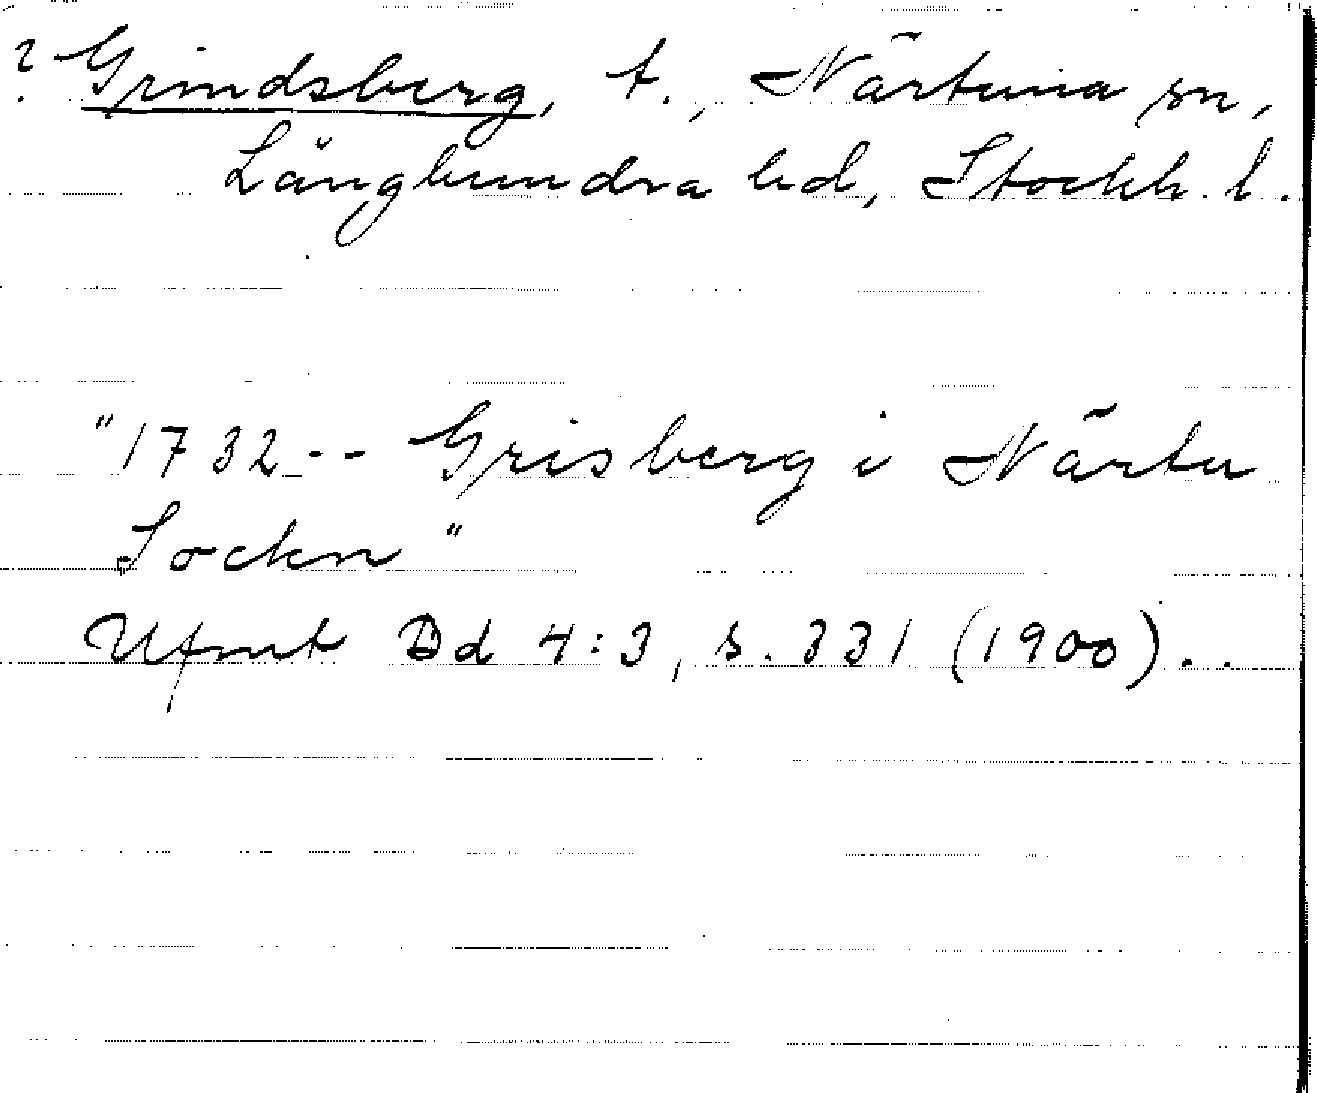 ? Grindsberg, t., Närtuna sn,
Långhundra hd, Stockh. l.
"1732 -- Grisberg i Närtu
Sockn"
Ufmt Bd 4:3, s. 331 (1900).